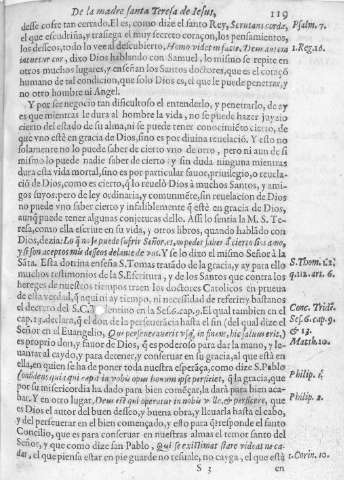 De la madre santa Teresa de Iesus, 119
desse cofre tan cerrado. El es, como dize el santo Rey, Scrutans corda, Psalm. 7.
el que escudriña, y trasiega el muy secreto coraçon, los pensamientos,
los desseos, todo lo vee al descubierto, Homo videt in facie, Deus autem 1. Reg. 16.
intuetur cor, dixo Dios hablando con Samuel, lo mismo se repite en
otros muchos lugares, y enseñan los Santos doctores, que es el coraçõ
humano de tal condicion, que solo Dios es, el que le puede penetrar, y
no otro hombre ni Angel.
Y por ser negocio tan dificultoso el entenderlo, y penetrarlo, de ay
es que mientras le dura al hombre la vida, no se puede hazer juyzio
cierto del estado de su alma, ni se puede tener conocimiẽto cierto, de
que vno estè en gracia de Dios, sino es por diuina reuelacion. Y esto no
solamente no lo puede saber de cierto vno de otro, pero ni aun de si
mismo lo puede saber de cierto: y sin duda ninguna mientras
dura esta vida mortal, sino es por particular fauor, priuilegio, o reuela-
ciõ de Dios, como es cierto, q̃ lo reuelò Dios à muchos Santos, y ami-
gos suyos: pero de ley ordinaria, y comunmẽte, sin reuelacion de Dios
no puede vno saber cierto y infaliblemẽte q̃ estè en gracia de Dios,
aunq̃ puede tener algunas conjeturas dello. Assi lo sentia la M. S. Te-
resa, como ella escriue en su vida, y otros libros, quando hablãdo con
Dios, dezia: Lo q̃ no se puede sufrir Señor, es, no poder saber d̃ cierto si os amo,
y si son aceptos mis desseos delante de vos. Y se lo dixo el mismo Señor à la
Sãta. Esta dotrina enseña S. Tomas tratãdo de la gracia, y ay para ello S. Thom. 1. 2.
muchos testimonios de la S. Escritura, y de los Santos que contra los q. 112. art. 6.
hereges de nuestros tiempos traen los doctores Catolicos en prueua
de esta verdad, q̃ aqui ni ay tiempo, ni necessidad de referir y bastanos
el decreto del S. C. Tridentino en la Ses. 6. cap. 9. El qual tambien en el Conc. Tridẽ.
cap. 13. declara, q̃ el don de la perseuerancia hasta el fin (del qual dize el Ses. 6. cap. 9.
Señor en el Euangelio, Qui perseuerauerit vsq̃, in finem, hic saluus erit,) & 13.
es proprio don, y fauor de Dios, q̃ es poderoso para dar la mano, y le- Matth. 10.
uantar al caydo, y para detener, y conseruar en su gracia, al que està en
ella, en quien se ha de poner toda nuestra esperãça, como dize S. Pablo
confidens quia qui cœpit in vobis opus bonum ipse perficiet, q̃ la gracia, que Philip. 1.
por su misericordia ha dado para bien comẽçar, la darà para bien aca-
bar. Y en otro lugar, Deus est qui operatur in nobis velle, & perficere, que Philip. 2.
es Dios el autor del buen desseo, y buena obra, y lleuarla hasta el cabo,
y del perseuerar en el bien començado, y esto para q̃ responde el santo
Concilio, que es para conseruar en nuestras almas el temor santo del
Señor, y que como dize san Pablo, Qui se existimat stare videat ne ca- 1. Corin. 10.
dat, el que piensa estar en pie guarde no resuale, no cayga, el que està
S 3 en